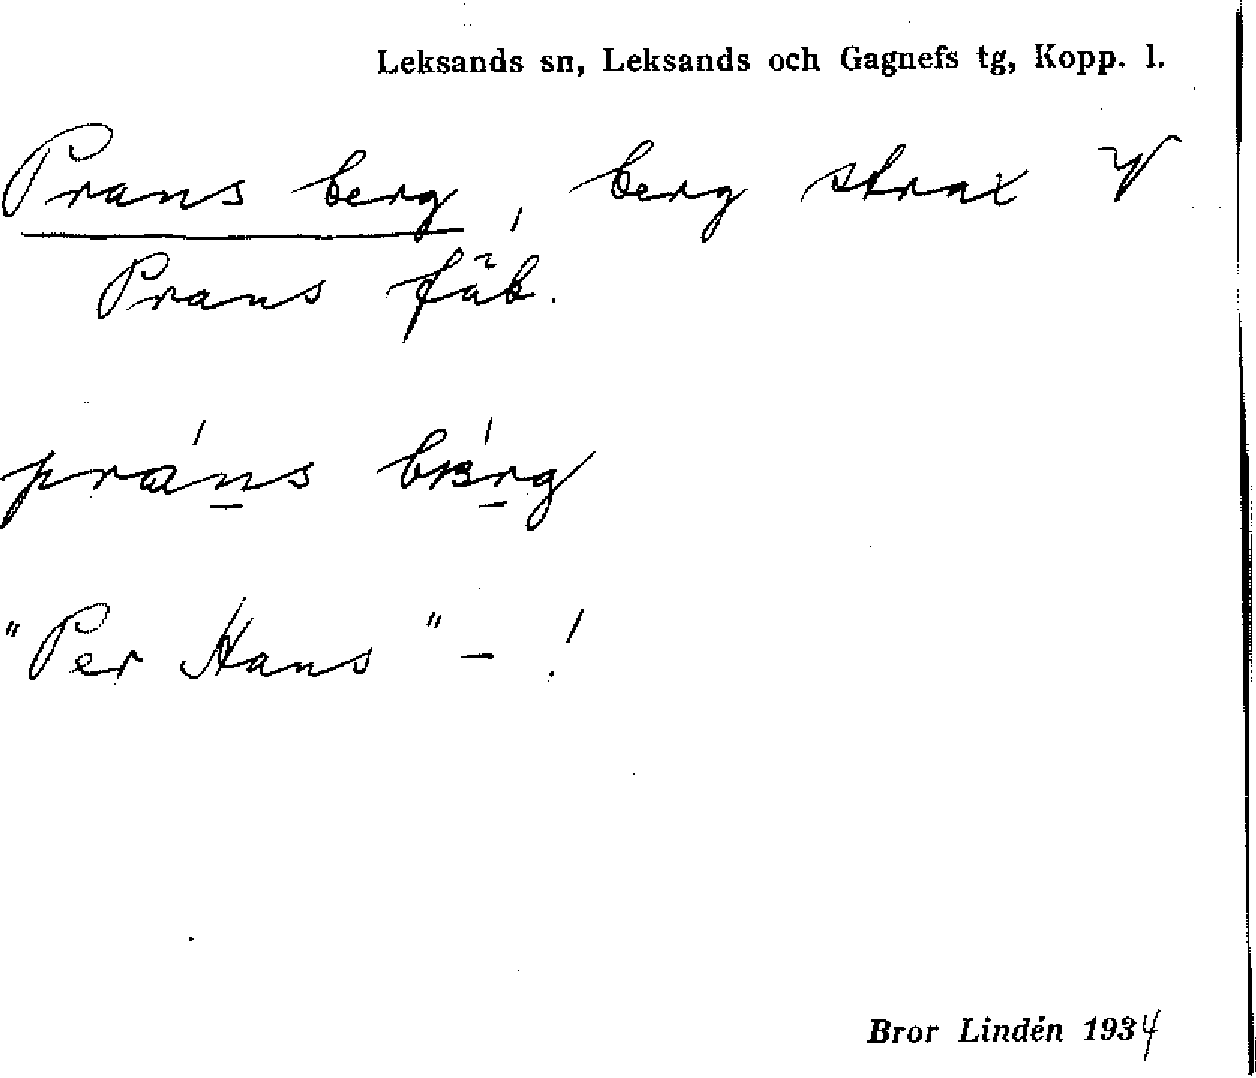 Leksands sn, Leksands och Gagnefs tg, Kopp. l.
Prans berg, berg strax V
Prans fäb.
prans bärg
"Per Hans" - !
Bror Lindén 1934